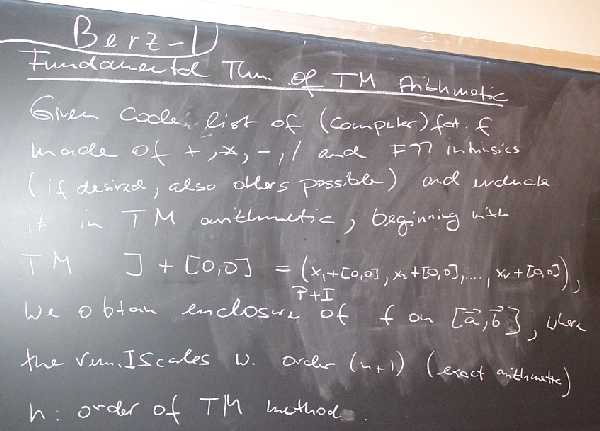 Berz-1
Fundamental Thm. of TM Arithmetic
Given Code list of (computer) fct. f
made of +, x, -, / and F77 intrinsics
(if desired, also others possible) and evaluate
it in TM arithmetic, beginning with
TM I + [0,0] = (x₁+[0,0], x₂+[0,0], ..., xᵥ+[0,0]),
P+I
We obtain enclosure of f on [a⃗,b⃗], where
the rem. I scales w. order (n+1) (exact arithmetic)
n: order of TM method.